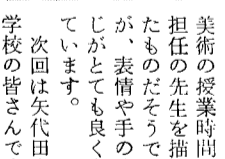 美術の授業時間
担任の先生を描
たものだそうで
が、表情や手の
じがとても良く
ています。
次回は矢代田
学校の皆さんで